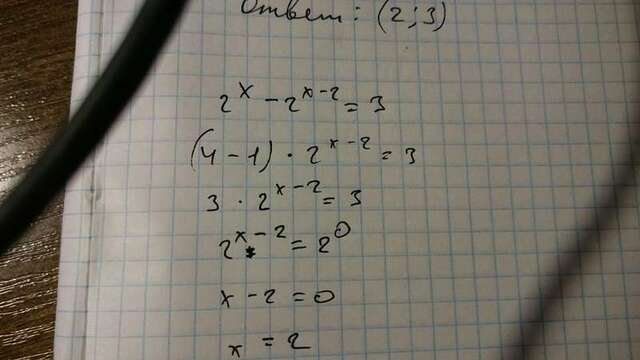 Ответ: (2;3)
2^x - 2^{x-2} = 3
(4-1) · 2^{x-2} = 3
3 · 2^{x-2} = 3
2^{x-2} = 2^0
x - 2 = 0
x = 2